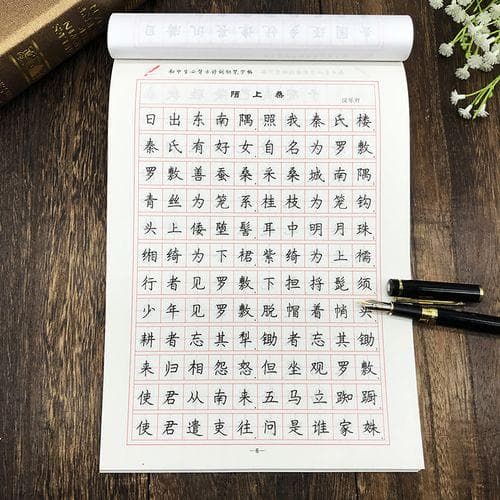 初中生必背古诗词钢笔字帖
陌上桑
汉乐府
日出东南隅照我秦氏楼
秦氏有好女自名为罗敷
罗敷善蚕桑采桑城南隅
青丝为笼系桂枝为笼钩
头上倭堕髻耳中明月珠
缃绮为下裙紫绮为上襦
行者见罗敷下担捋髭须
少年见罗敷脱帽着帩头
耕者忘其犁锄者忘其锄
来归相怨怒但坐观罗敷
使君从南来五马立踟蹰
使君遣吏往问是谁家姝